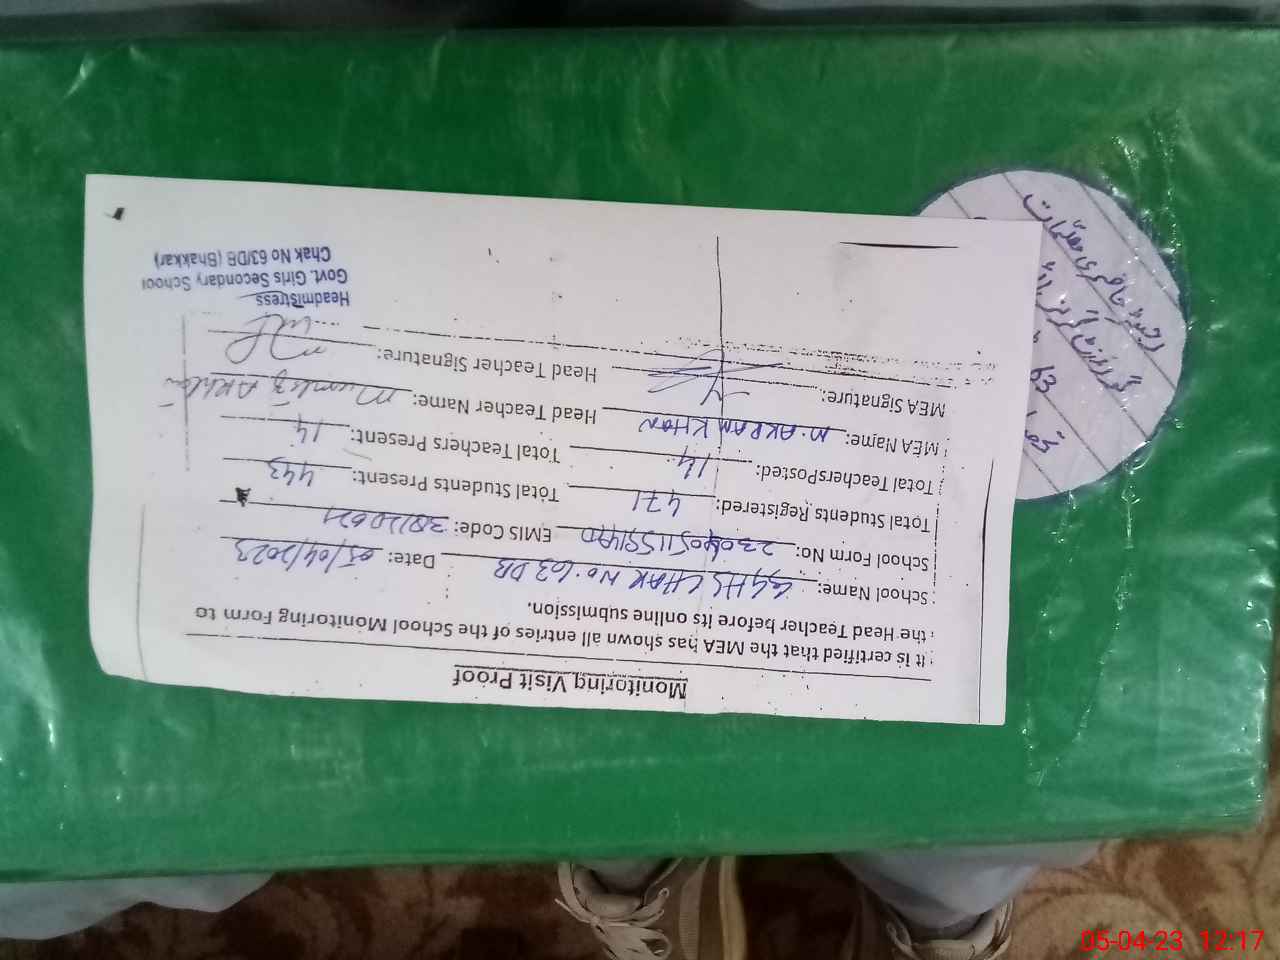 Monitoring Visit Proof
It is certified that the MEA has shown all entries of the School Monitoring Form to
the Head Teacher before its online submission.
School Name: GGHS CHAK No. 63 DB Date: 05/04/2023
School Form No: EMIS Code:
Total Students Registered: 471 Total Students Present: 443
Total TeachersPosted: 14 Total Teachers Present: 14
MEA Name: M. AKRAM KHAN Head Teacher Name: Mumtaz Akhtar
MEA Signature: Head Teacher Signature:
Headmistress
Govt. Girls Secondary School
Chak No 63/DB (Bhakkar)
63
05-04-23 12:17